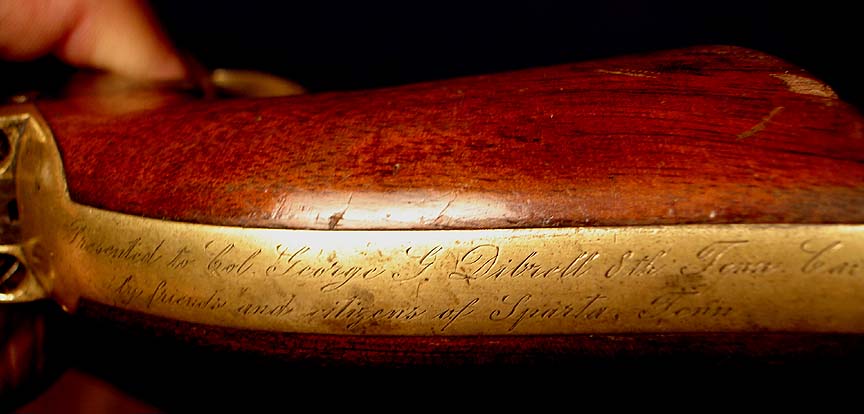 Presented to Col. George G. Dibrell 8th Tenn Cav
by friends and citizens of Sparta, Tenn